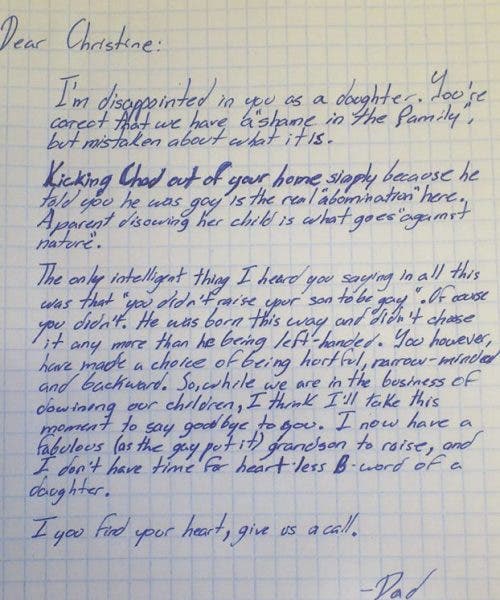 Dear Christine:
I'm disappointed in you as a daughter. You're
corect that we have a "shame in the family",
but mistaken about what it is.
Kicking Chad out of your home simply because he
told you he was gay is the real "abomination" here.
A parent disowing her child is what goes "against
nature".
The only intelligent thing I heard you saying in all this
was that "you didn't raise your son to be gay". Of couse
you didn't. He was born this way and didn't chose
it any more than he being left-handed. You however,
have made a choice of being hurtful, narrow-minded
and backward. So, while we are in the business of
disowning our children, I think I'll take this
moment to say goodbye to you. I now have a
fabulous (as the gay put it) grandson to raise, and
I don't have time for heart-less B-word of a
daughter.
I you find your heart, give us a call.
-Dad